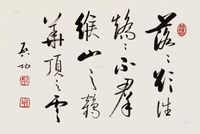 落〻欲往
矯〻不羣
緱山之鶴
華頂之雲
启功